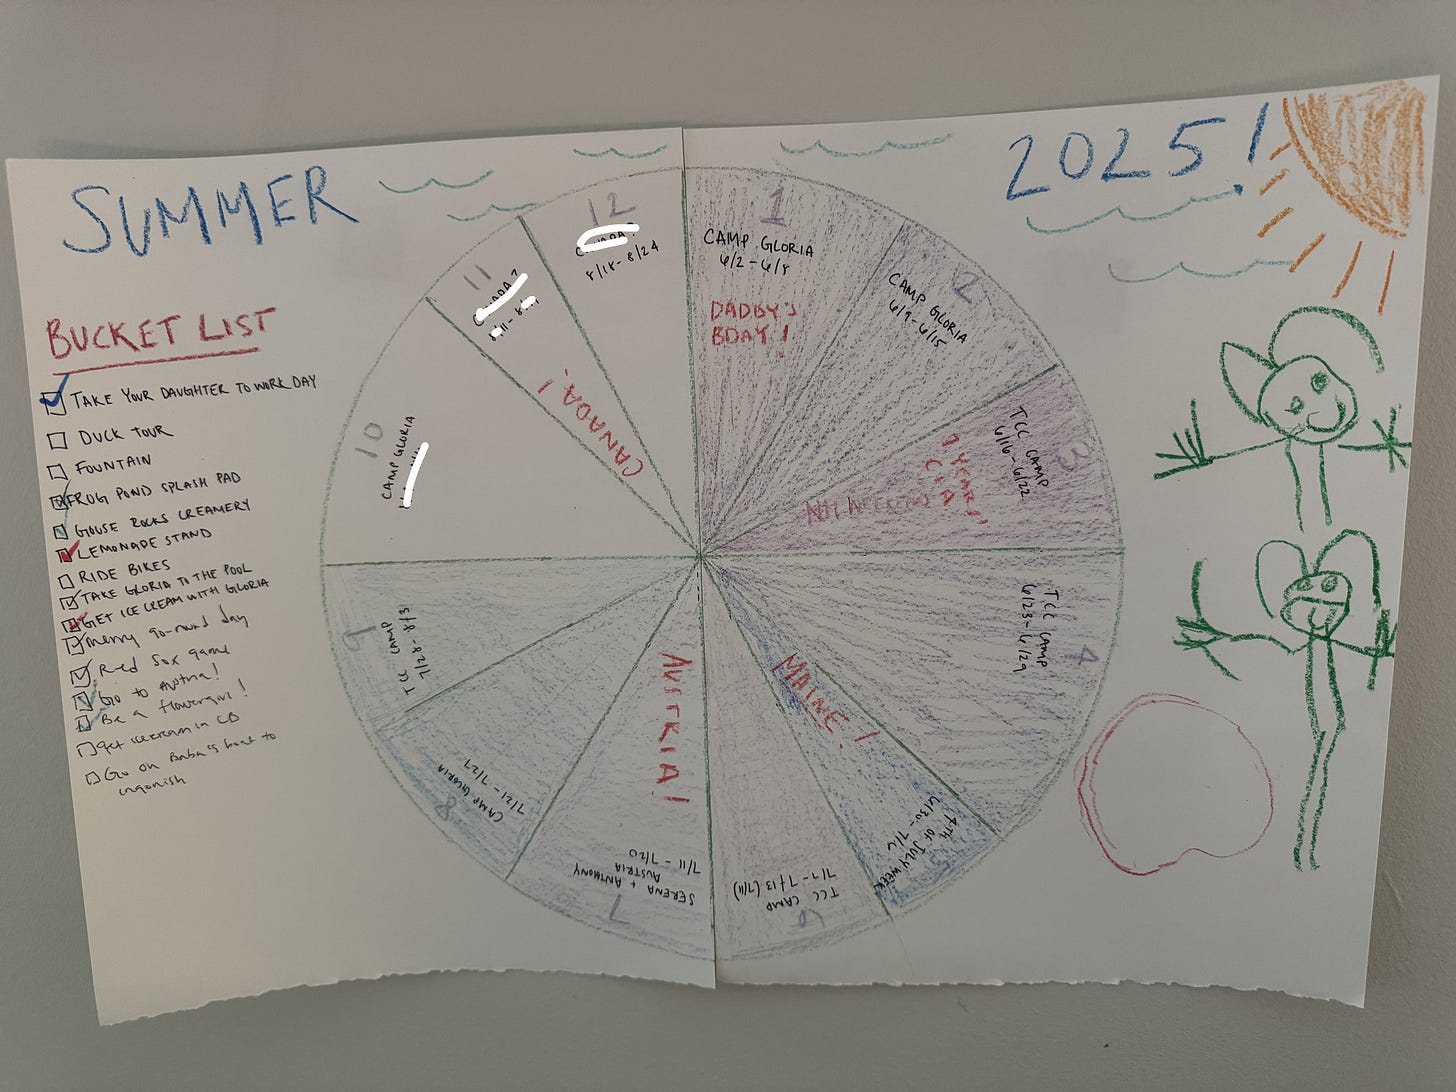 SUMMER
2025!
BUCKET LIST
TAKE YOUR DAUGHTER TO WORK DAY
DUCK TOUR
FOUNTAIN
FROG POND SPLASH PAD
GOUSE ROCKS CREAMERY
LEMONADE STAND
RIDE BIKES
TAKE GLORIA TO THE POOL
GET ICE CREAM WITH GLORIA
merry go-round day
Red Sox game
Go to Austria!
Be a flowergirl!
get icecream in CB
Go on Baba's boat to
ingonish
1
CAMP GLORIA
6/2-6/8
DADDY'S
BDAY!
2
CAMP GLORIA
6/9-6/15
3
TCC CAMP
6/16-6/22
7 YEARS
NH WEEKEND
4
TCC CAMP
6/23-6/29
5
4TH OF JULY WEEK
6/30-7/6
MAINE!
6
TCC CAMP
7/7-7/13 (7/11)
7
SERENA + ANTHONY
AUSTRIA
7/11-7/20
AUSTRIA!
8
CAMP GLORIA
7/21-7/27
9
TCC CAMP
7/28-8/3
10
CAMP GLORIA
11
CANADA!
12
8/18-8/24